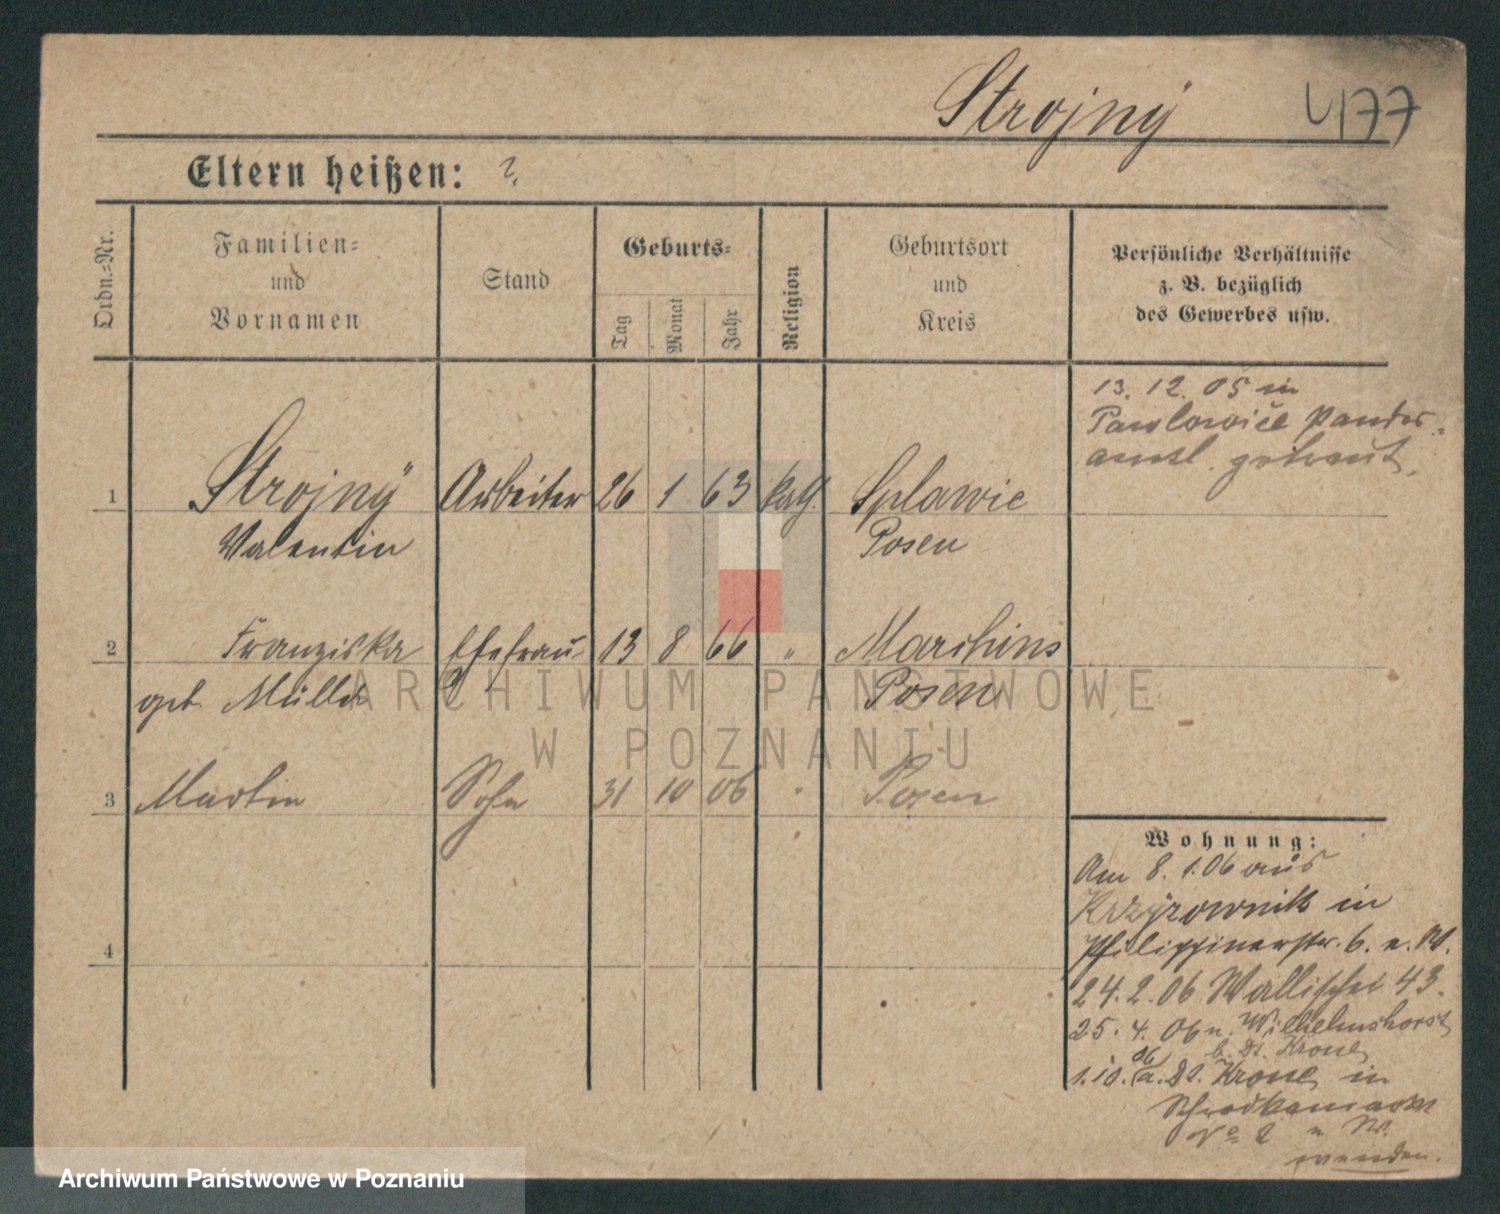 Strojnÿ 4177
Eltern heißen: ?
Ordn.-Nr.
Familien-
und
Vornamen
Stand
Geburts-
Tag
Monat
Jahr
Religion
Geburtsort
und
Kreis
Persönliche Verhältnisse
z. B. bezüglich
des Gewerbes usw.
13. 12. 05 in
Pawlowice standes-
amtl. getraut.
1 Strojnÿ Arbeiter 26 1 63 kath. Splawie
Valentin Posen
2 Franziska Ehefrau 13 8 66 " Marschins
geb. Müller Posen
3 Martin Sohn 31 10 06 " Posen
4
Wohnung:
Am 8. 1. 06 aus
Krzÿzownik in
Philippinerstr. 6. n. W.
24. 2. 06 Wallischei 43.
25. 4. 06 n. Wilhelmshorst
b. Dt. Krone
1. 10. 06 a. Dt. Krone in
Schrodkamarkt
No 2 n W.
wenden.
ARCHIWUM PAŃSTWOWE
W POZNANIU
Archiwum Państwowe w Poznaniu